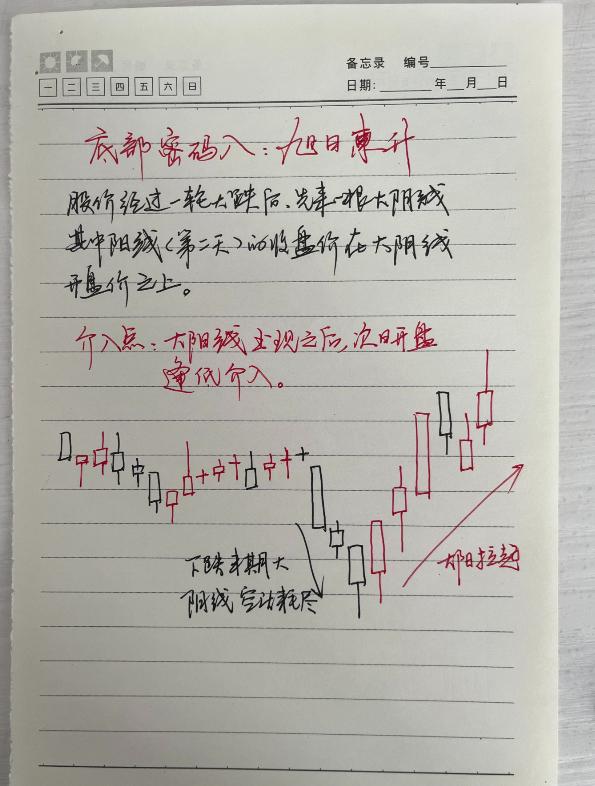 备忘录 编号
一 二 三 四 五 六 日
日期: 年 月 日
底部密码八：旭日東升
股价经过一轮大跌后，先来一根大阴线
其中阳线（第二天）的收盘价在大阴线
开盘价之上。
介入点：大阳线出现之后，次日开盘
逢低介入。
下跌末期大
阴线 空头耗尽
大阳拉起